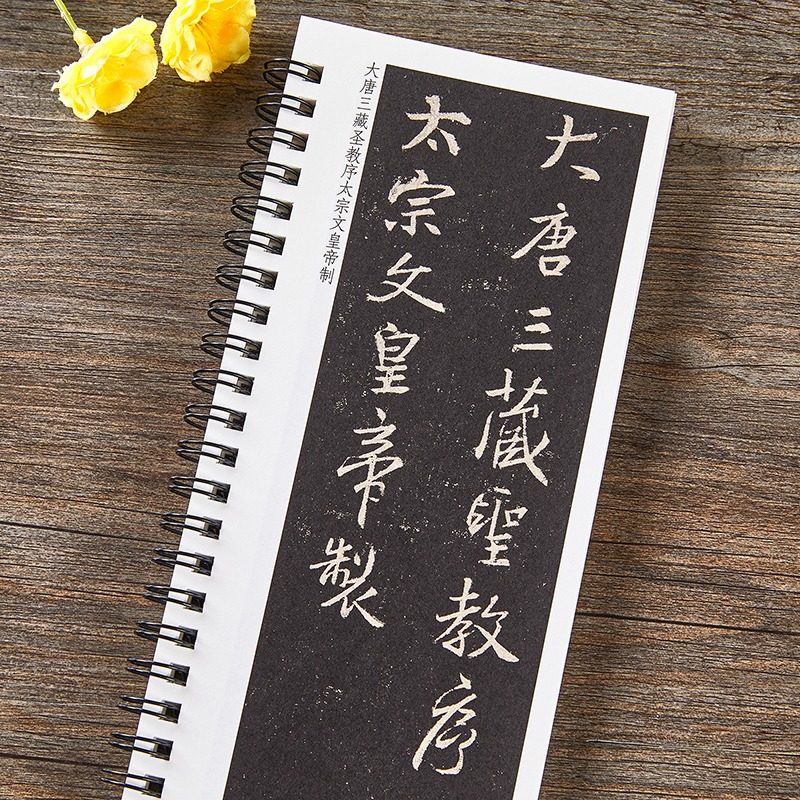 大唐三藏聖教序
太宗文皇帝製
大唐三藏圣教序太宗文皇帝制